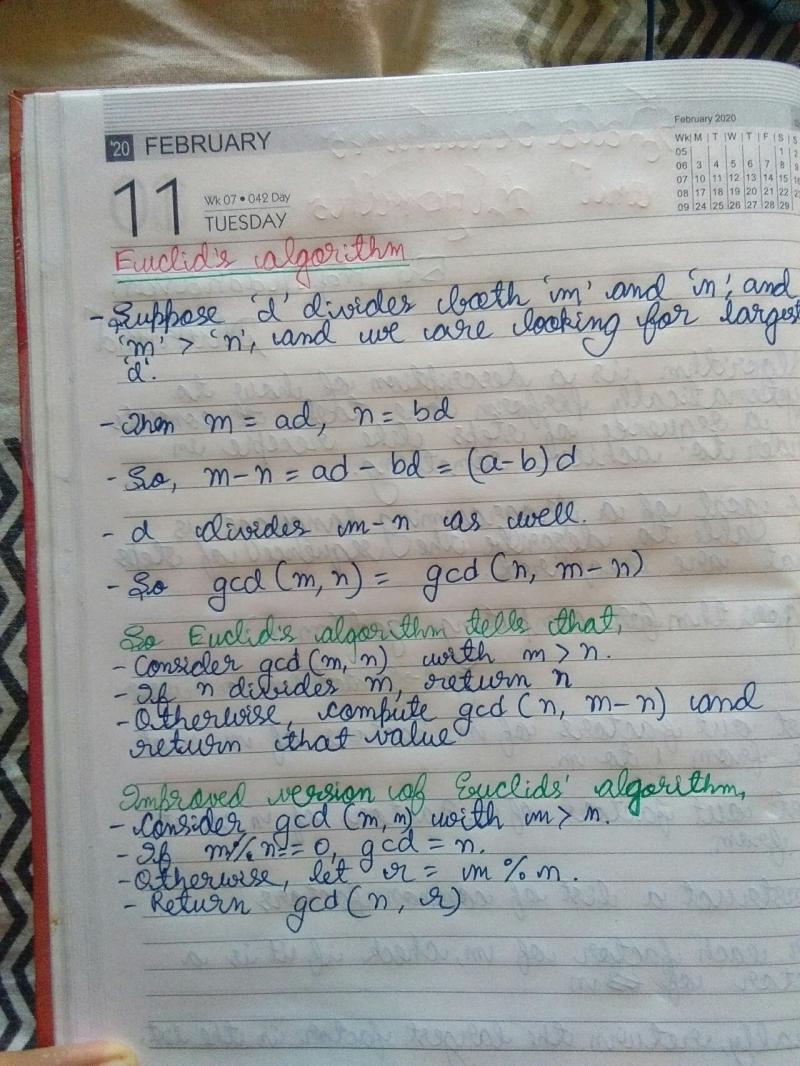 '20 FEBRUARY
11
Wk 07 • 042 Day
TUESDAY
February 2020
Wk M T W T F S S
05 1 2
06 3 4 5 6 7 8
07 10 11 12 13 14 15 16
08 17 18 19 20 21 22 23
09 24 25 26 27 28 29
Euclid's algorithm
- Suppose 'd' divides both 'm' and 'n', and
'm' > 'n', and we are looking for largest
'd'.
- Then m = ad, n = bd
- So, m-n = ad - bd = (a-b)d
- d divides m-n as well.
- So gcd (m, n) = gcd (n, m-n)
So Euclid's algorithm tells that,
- Consider gcd (m, n) with m > n.
- If n divides m, return n
- Otherwise, compute gcd (n, m-n) and
return that value
Improved version of Euclids' algorithm,
- Consider gcd (m, n) with m > n.
- If m % n == 0, gcd = n.
- Otherwise, let r = m % n.
- Return gcd (n, r)